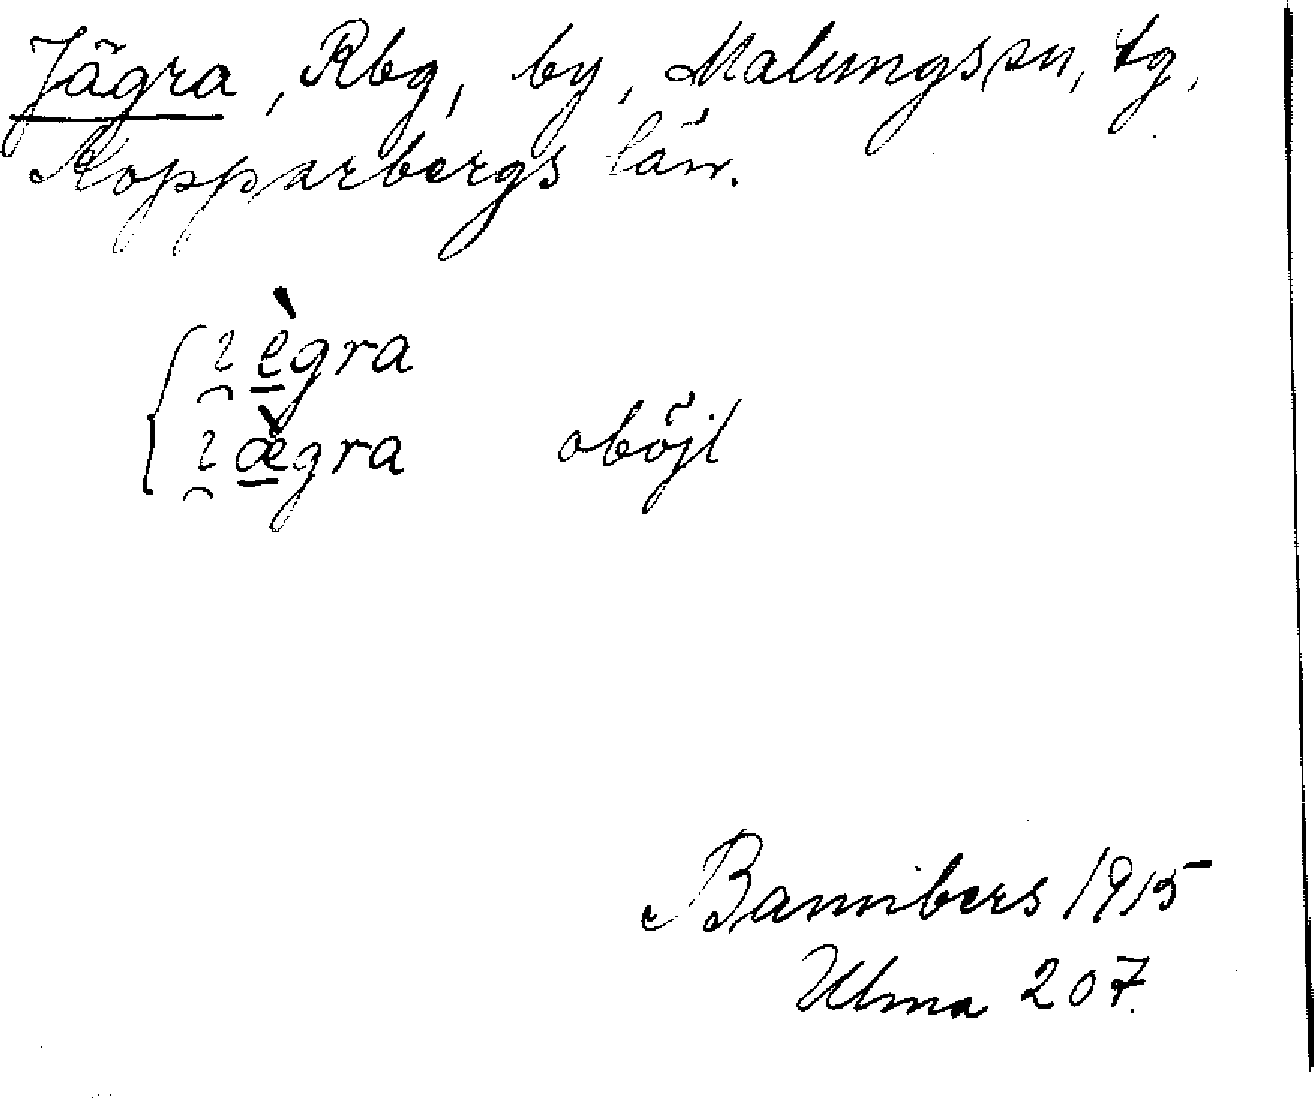 Jägra, Rbg, by, Malungs sn, tg,
Kopparbergs län.
{ ı̯ ę̀gra
ı̯ æ̨̀gra oböjl
Bannbers 1915
Ulma 207.